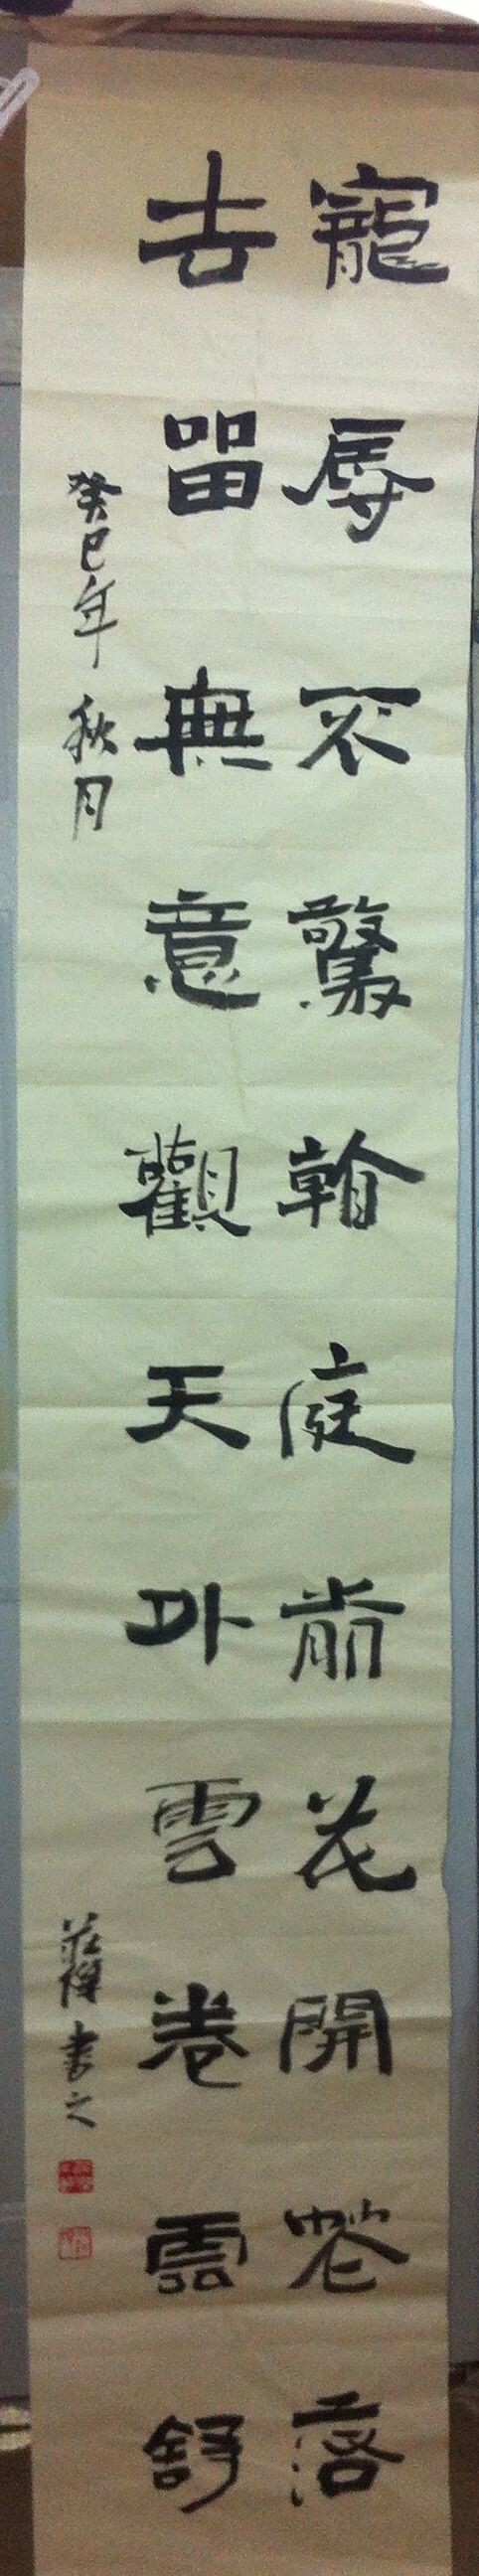 寵辱不驚看庭前花開花落
去留無意觀天外雲卷雲舒
癸巳年 秋月
書之